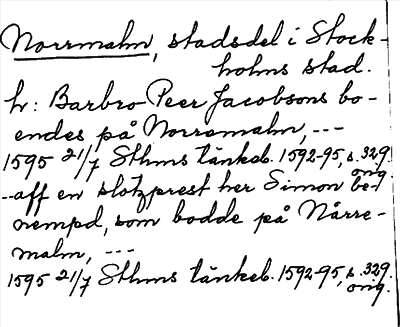 Norrmalm, stadsdel i Stock-
holms stad.
h: Barbro Peer Jacobsons bo-
endes på Norramalm, ---
1595 21/7 Sthms tänkeb. 1592-95, s. 329.
orig.
--aff en slotzprest her Simon be-
nempd, som bodde på Nårre-
malm, ---
1595 21/7 Sthms tänkeb. 1592-95, s. 329.
orig.